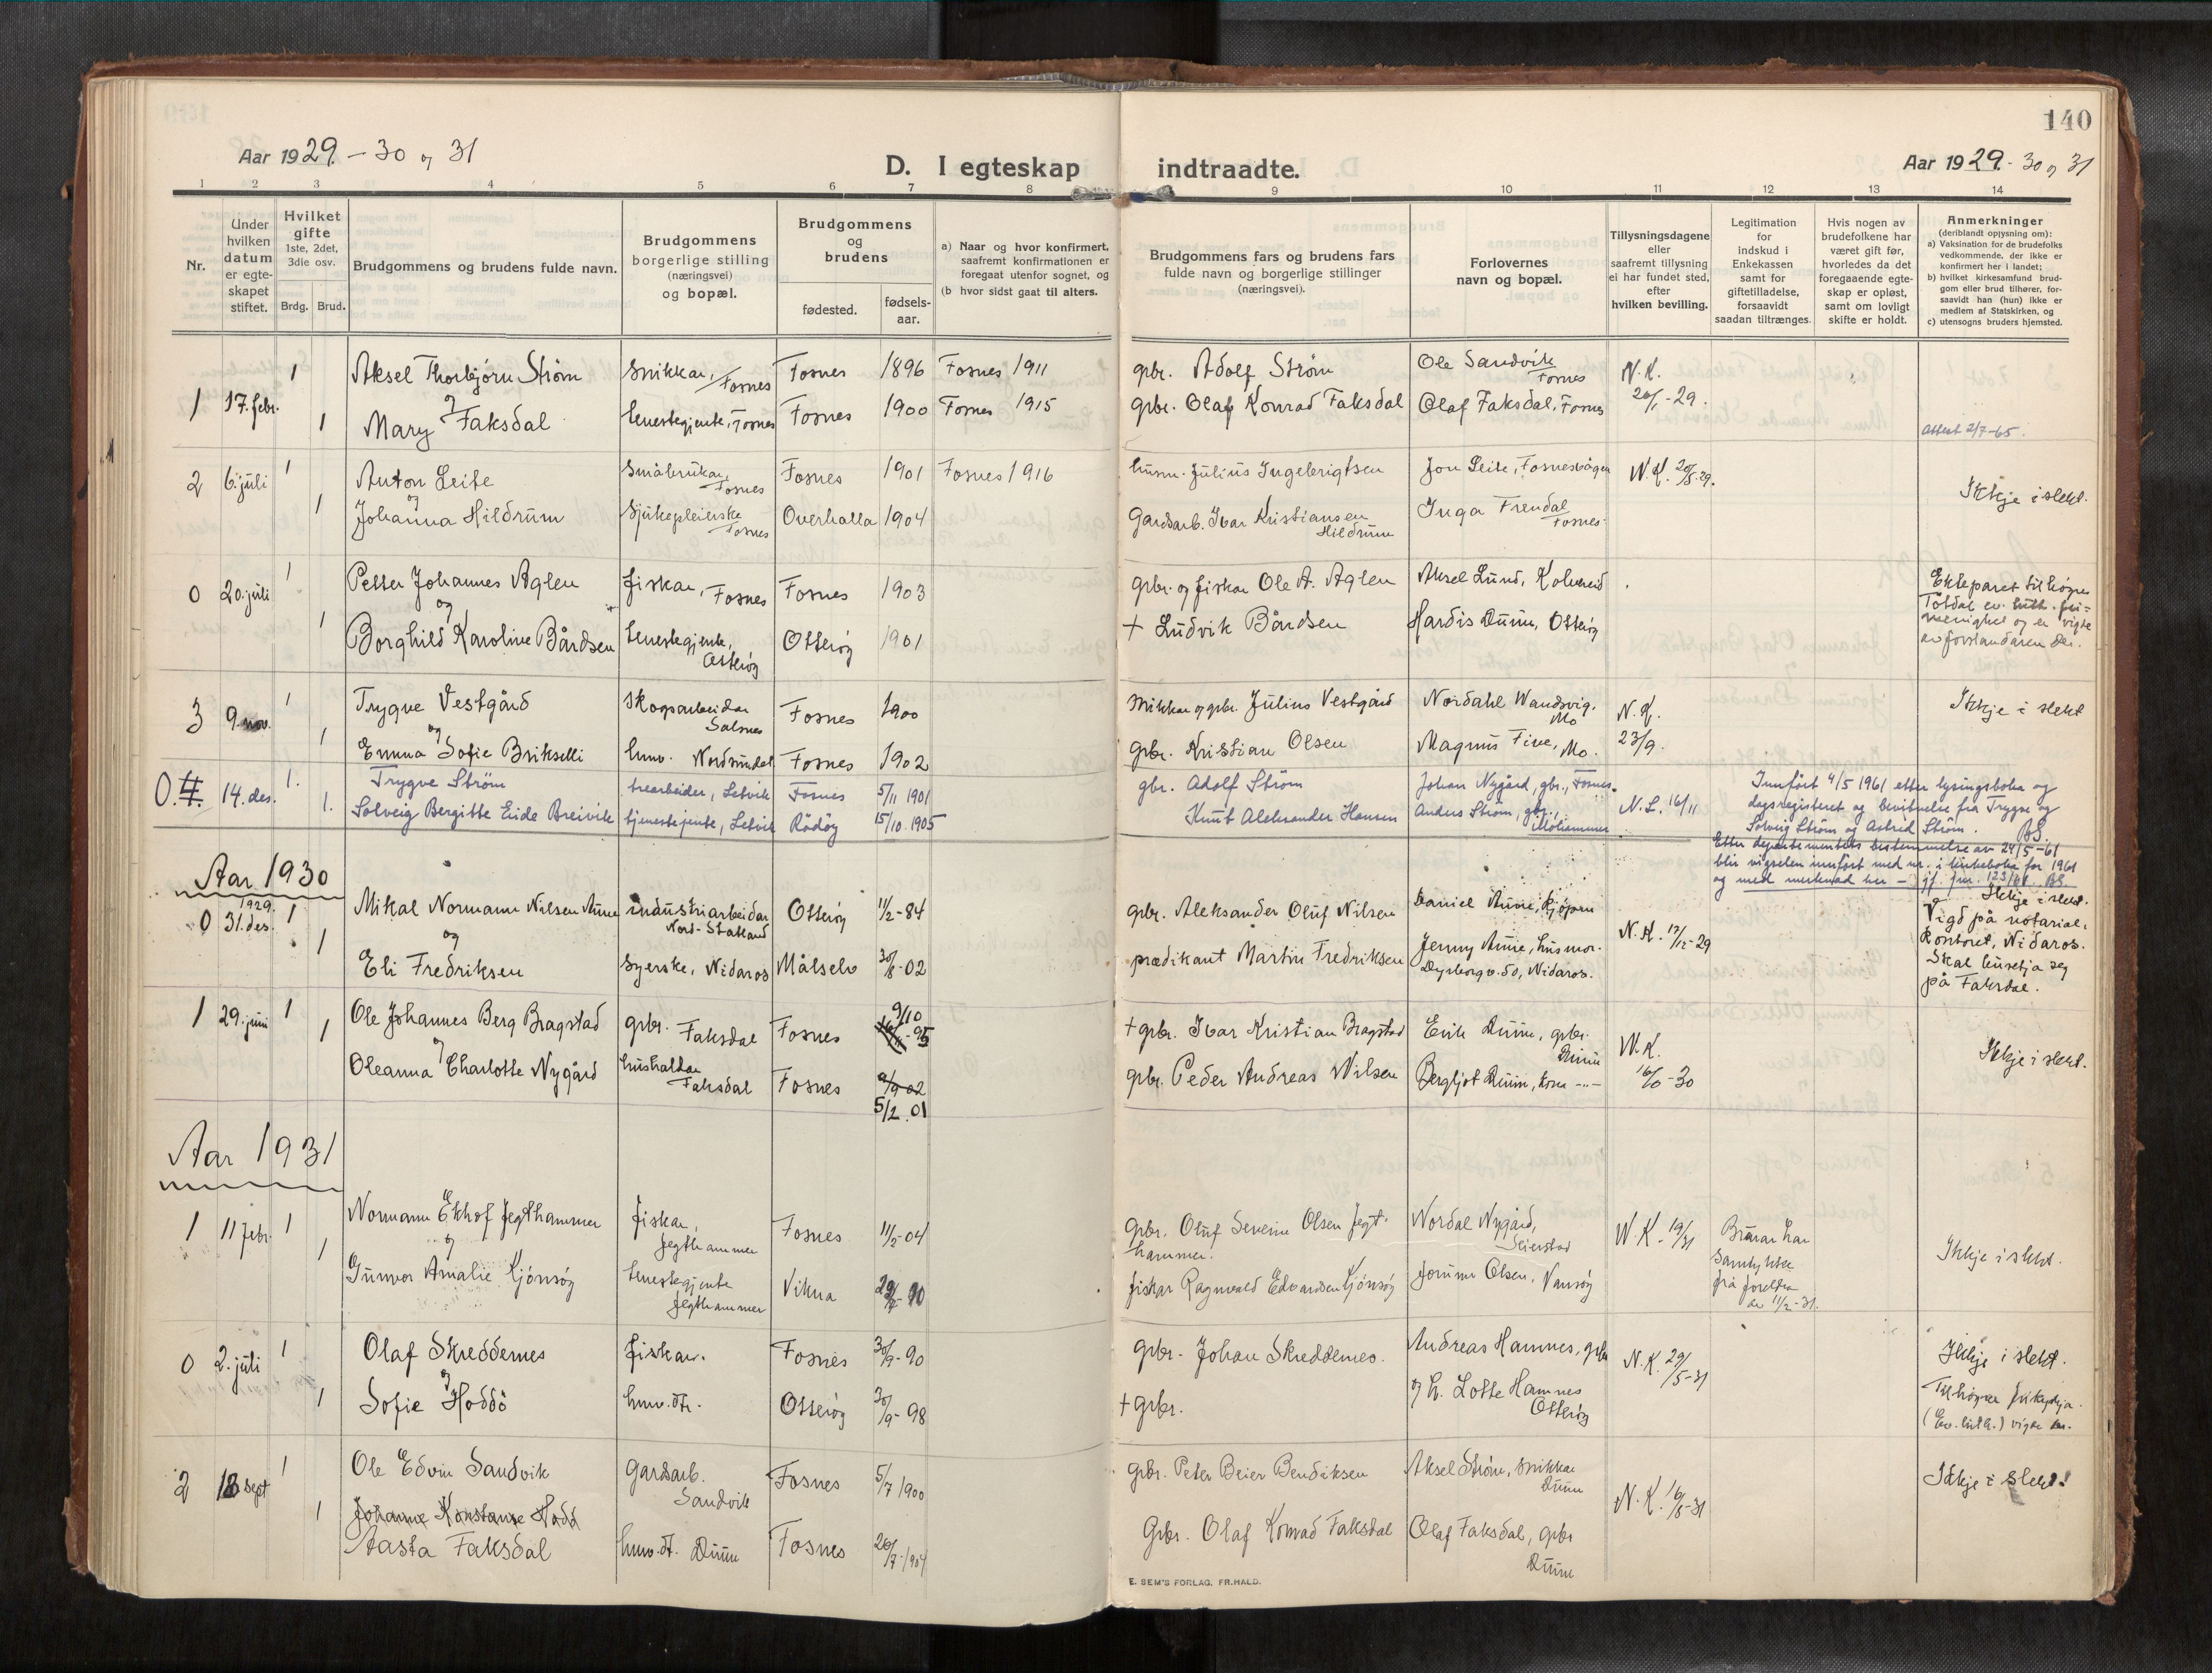 140
Aar 1929. - 30 og 31
D. I egteskap indtraadte.
Aar 1929. - 30 og 31
1 2 3 4 5 6 7 8 9 10 11 12 13 14
Nr.
Under hvilken datum er egteskapet stiftet.
Hvilket gifte 1ste, 2det, 3die osv.
Brdg. Brud.
Brudgommens og brudens fulde navn.
Brudgommens borgerlige stilling (næringsvei) og bopæl.
Brudgommens og brudens
fødested.
fødsels-aar.
a) Naar og hvor konfirmert, saafremt konfirmationen er foregaat utenfor sognet, og
(b hvor sidst gaat til alters.
Brudgommens fars og brudens fars fulde navn og borgerlige stillinger (næringsvei).
Forlovernes navn og bopæl.
Tillysningsdagene eller saafremt tillysning ei har fundet sted, efter hvilken bevilling.
Legitimation for indskud i Enkekassen samt for giftetilladelse, forsaavidt saadan tiltrænges.
Hvis nogen av brudefolkene har været gift før, hvorledes da det foregaaende egteskap er opløst, samt om lovligt skifte er holdt.
Anmerkninger (deriblandt opjysning om):
a) Vaksination for de brudefolks vedkommende, der ikke er konfirmert her i landet;
b) hvilket kirkesamfund brudgom eller brud tilhører, forsaavidt han (hun) ikke er medlem af Statskirken, og
c) utensogns bruders hjemsted.
1 17. febr. 1 Aksel Thorbjørn Strøm Snikkar, Fosnes Fosnes 1896 Fosnes 1911 grbr. Adolf Strøm Ole Sandvik Fosnes N.K. 20/1-29.
og
1 Mary Faksdal tenestegjente, Fosnes Fosnes 1900 Fosnes 1915 grbr. Olaf Konrad Faksdal Olaf Faksdal, Fosnes
Attest 2/7-65.
2 6. juli 1 Anton Leite Småbrukar, Fosnes Fosnes 1901 Fosnes 1916 husm. Julius Ingebrigtsen Jon Leite, Fosnesvågen N.K. 20/5-29. Ikkje i slekt.
og
1 Johanna Hildrum Sjukepleierske Fosnes Overhalla 1904 Gardsarb. Ivar Kristiansen Hildrum Inga Frendal Fosnes
0 20. juli 1 Petter Johannes Aglen fiskar, Fosnes Fosnes 1903 grbr. og fiskar Ole A. Aglen Aksel Lund, Kolvereid
og
1 Borghild Karoline Bårdsen tenestegjente, Otterøy Otterøy 1901 + Ludvik Bårdsen Hardis Duun, Otterøy
Ekteparet tilhøyre
Tötdal ev. luth. fri=
menighet og er vigde
av forstandaren der.
3 9 nov. 1 Trygve Vestgård Skogsarbeidar Salsnes Fosnes 1900 Snikkar og grbr. Julius Vestgård Nordahl Wandsvig, Mo N.K. 23/9. Ikkje i slekt
og
1 Emma Sofie Brikselli huv. Nordsundet Fosnes 1902 grbr. Kristian Olsen Magnus Fine, Mo.
0. 4. 14. des. 1. Trygve Strøm trearbeider, Letvik Fosnes 5/11 1901 gbr. Adolf Strøm Johan Nygård, gbr., Fosnes. N.L. 16/11
1. Solveig Bergitte Eide Breivik tjenestejente, Letvik Rödöy 15/10 1905 Knut Aleksander Hansen Anders Strøm, gbr., Mohammer
Innført 4/5 1961 etter lysingsboka og
dagsregisteret og bevitnelse fra Trygve og
Solveig Strøm og Astrid Strøm. BS.
Etter departementets bestemmelse av 24/5-61
blir vigselen innført med nr. i kirkeboka for 1961
og med merknad her - jf. jnr. 123/61. BS.
Aar 1930
0 1929. 31. des. 1 Mikal Normann Nilsen Aune industriarbeidar Nord-Statland Otterøy 11/2-84 grbr. Aleksander Oluf Nilsen Daniel Aune, N.K. 12/12-29
og
1 Eli Fredriksen Syerske, Nidaros Målselv 30/8-02 prædikant Martin Fredriksen Jenny Aune, husmor. Dyrborgv. 50, Nidaros.
Ikkje i slekt.
Vigd på notarial-
kontoret, Nidaros.
Skal busetja seg
på Faksdal.
1 29. juni 1 Ole Johannes Berg Bragstad grbr. Faksdal Fosnes 9/10 -95 + grbr. Ivar Kristian Bragstad Erik Duun, grbr. Duun N.K. 16/6-30 Ikkje i slekt.
og
1 Oleanna Charlotte Nygård hushaldar Faksdal Fosnes 9/9-02 5/2.01 grbr. Peder Andreas Nilsen Bergljot Duun, kone -"-
Aar 1931
1 11 febr. 1 Normann Ekhof Jegthammer fiskar, Jegthammer Fosnes 11/2-04 grbr. Oluf Severin Olsen Jegthammer. Nordal Nygård, Seierstad N.K. 19/1 31 Ikkje i slekt.
og
1 Gunvor Amalie Kjönsöy tenestegjente Jegthammer Vikna -10 fiskar Ragnvald Edvardsen Kjönsöy Jorunn Olsen, Vansöy
Brura har
samtykke
frå foreldra
av 11/2-31.
0 2. juli 1 Olaf Skreddernes fiskar. Fosnes 30/9-90 grbr. Johan Skreddernes. Andreas Hamnes, grbr N.K. 29/5-31 Ikkje i slekt.
og
1 Sofie Hoddö huv. dtr. Otterøy 30/9-98 + grbr. og h. Lotte Hamnes Otterøy
Tilhøyrer frikyrkja.
(Ev. luth.) vigde der.
2 18 sept 1 Ole Edvin Sandvik Gardsarb. Sandvik Fosnes 5/7 1900 grbr. Peter Beier Bendiksen Aksel Strøm, Snikkar Duun N.K. 16/8-31 Ikkje i slekt.
1 Johanne Konstanse Hodd
Aasta Faksdal huv. dt. Duun Fosnes 20/7-1904 Grbr. Olaf Konrad Faksdal Olaf Faksdal, grbr Duun
E. SEM'S FORLAG, FR.HALD.